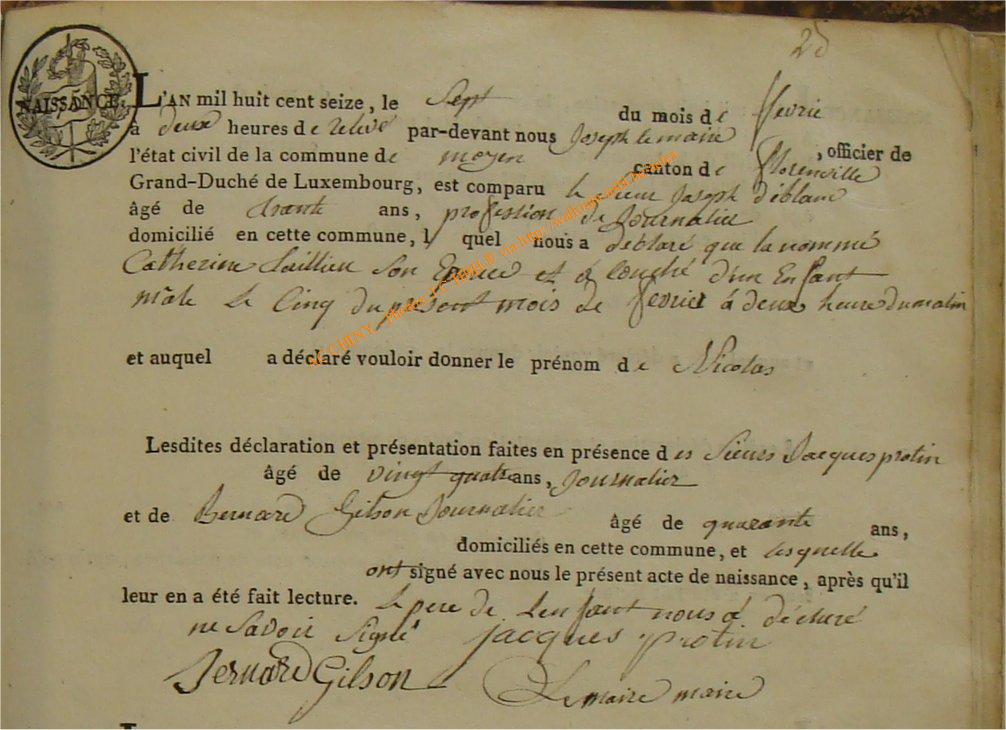 25
NAISSANCE.
L'AN mil huit cent seize, le Sept du mois de fevrie
à deux heures de relevé par-devant nous Joseph lemaire, officier de
l'état civil de la commune de moyen canton de florenville
Grand-Duché de Luxembourg, est comparu le sieur Joseph
âgé de trante ans, profession de Journalier
domicilié en cette commune, lequel nous a déclaré que la nommé
Catherine son Epouse et a Couché d'un Enfant
mâle le Cinq du present mois de fevrier à deux heure du matin
et auquel a déclaré vouloir donner le prénom de Nicolas
Lesdites déclaration et présentation faites en présence des Sieurs Jacques protin
âgé de vingt quatre ans, Journalier
et de Bernard Gilson Journalier âgé de quarante ans,
domiciliés en cette commune, et lesquelle
ont signé avec nous le présent acte de naissance, après qu'il
leur en a été fait lecture. le pere de Lenfant nous a déclaré
ne savoir Signé jacques protin
Bernard Gilson Lemaire maire